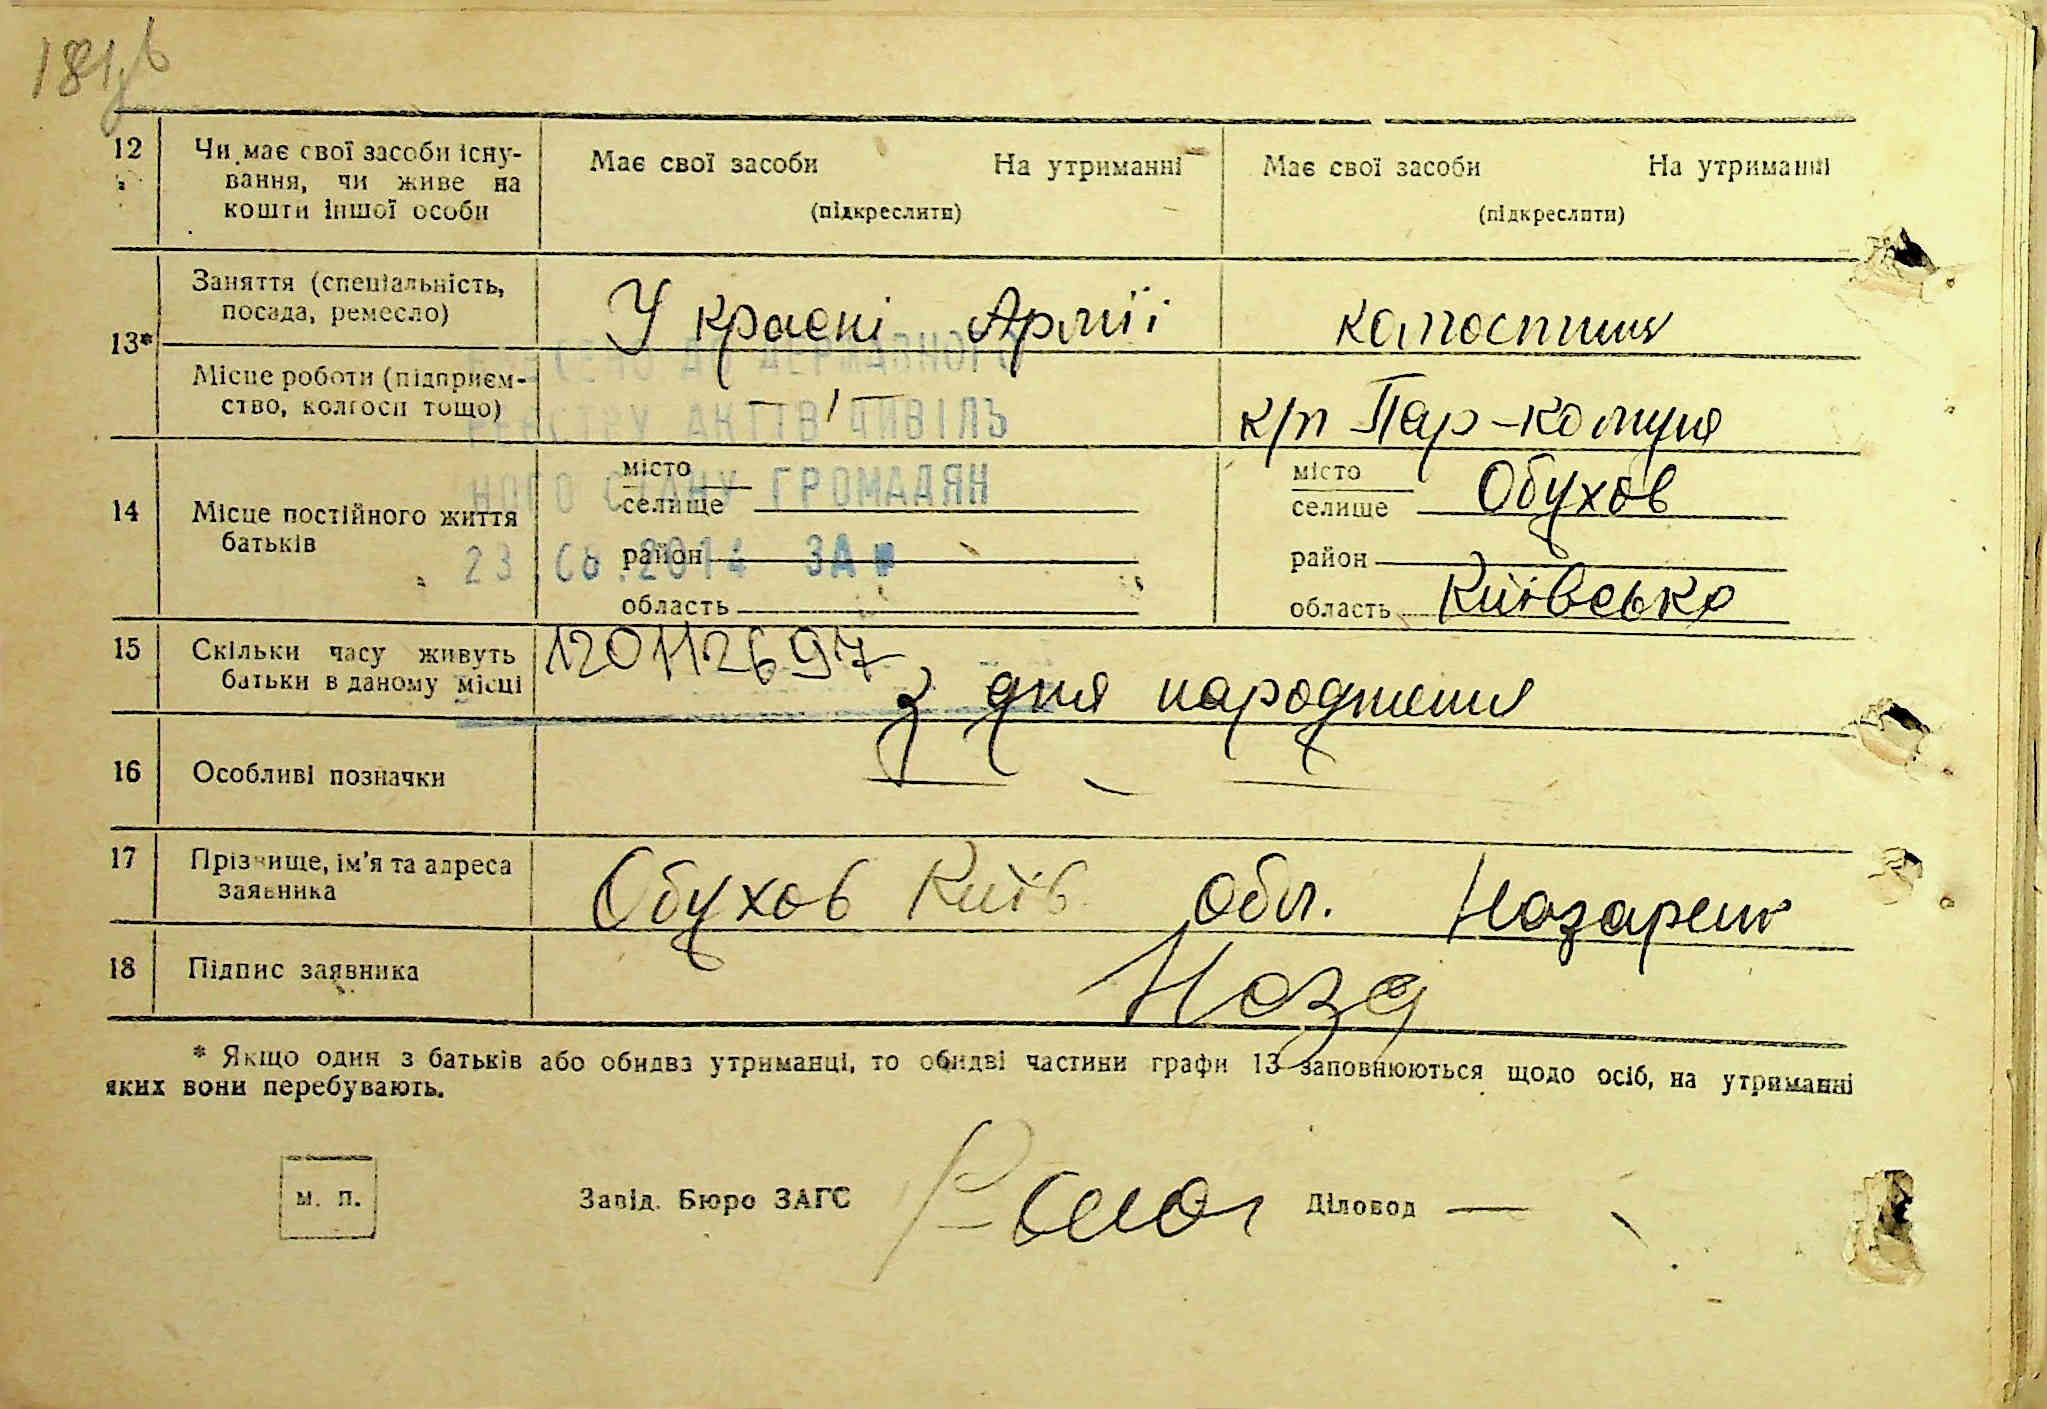 12
Чи має свої засоби існу-
вання, чи живе на
кошти іншої особи
Має свої засоби На утриманні
(підкреслити)
Має свої засоби На утриманні
(підкреслити)
13*
Заняття (спеціальність,
посада, ремесло)
У красні Армії
Місце роботи (підприєм-
ство, колгосп тощо)
— / —
к/г Пар-комуна
14
Місце постійного життя
батьків
місто
селище
район
область
місто
селище Обухов
район
область Київська
ДЕРЖАВНОГО
РЕЄСТРУ АКТІВ ЦИВІЛЬ
НОГО СТАНУ ГРОМАДЯН
23.06.2014 ЗА №
15
Скільки часу живуть
батьки в даному місці
120112697
з дня народження
16
Особливі позначки
17
Прізвище, ім'я та адреса
заявника
Обухов Київ обл. Назаренко
18
Підпис заявника
* Якщо один з батьків або обидва утриманці, то обидві частини графи 13 заповнюються щодо осіб, на утриманні
яких вони перебувають.
м. п.
Завід. Бюро ЗАГС
Діловод —